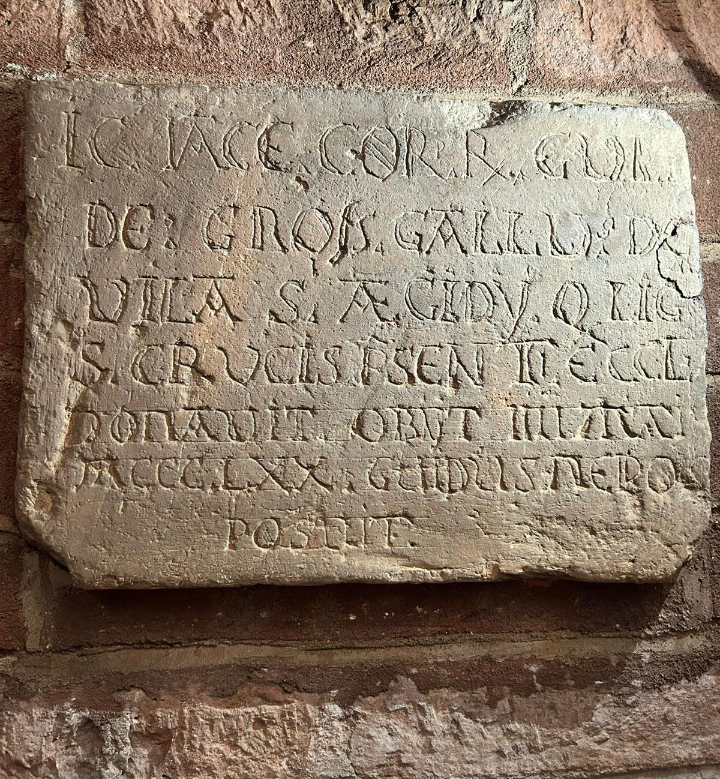 IC. IACE. CORP. R. GUI.
DE: GROS. GALLU: DE
VILA S. ÆGIDY. Q LIG
S. CRUCIS PSENTI. ECCL
DONAVIT. OBYT IIII MAI
MCCCLXX. GUIDUS NEPO
POSVIT.